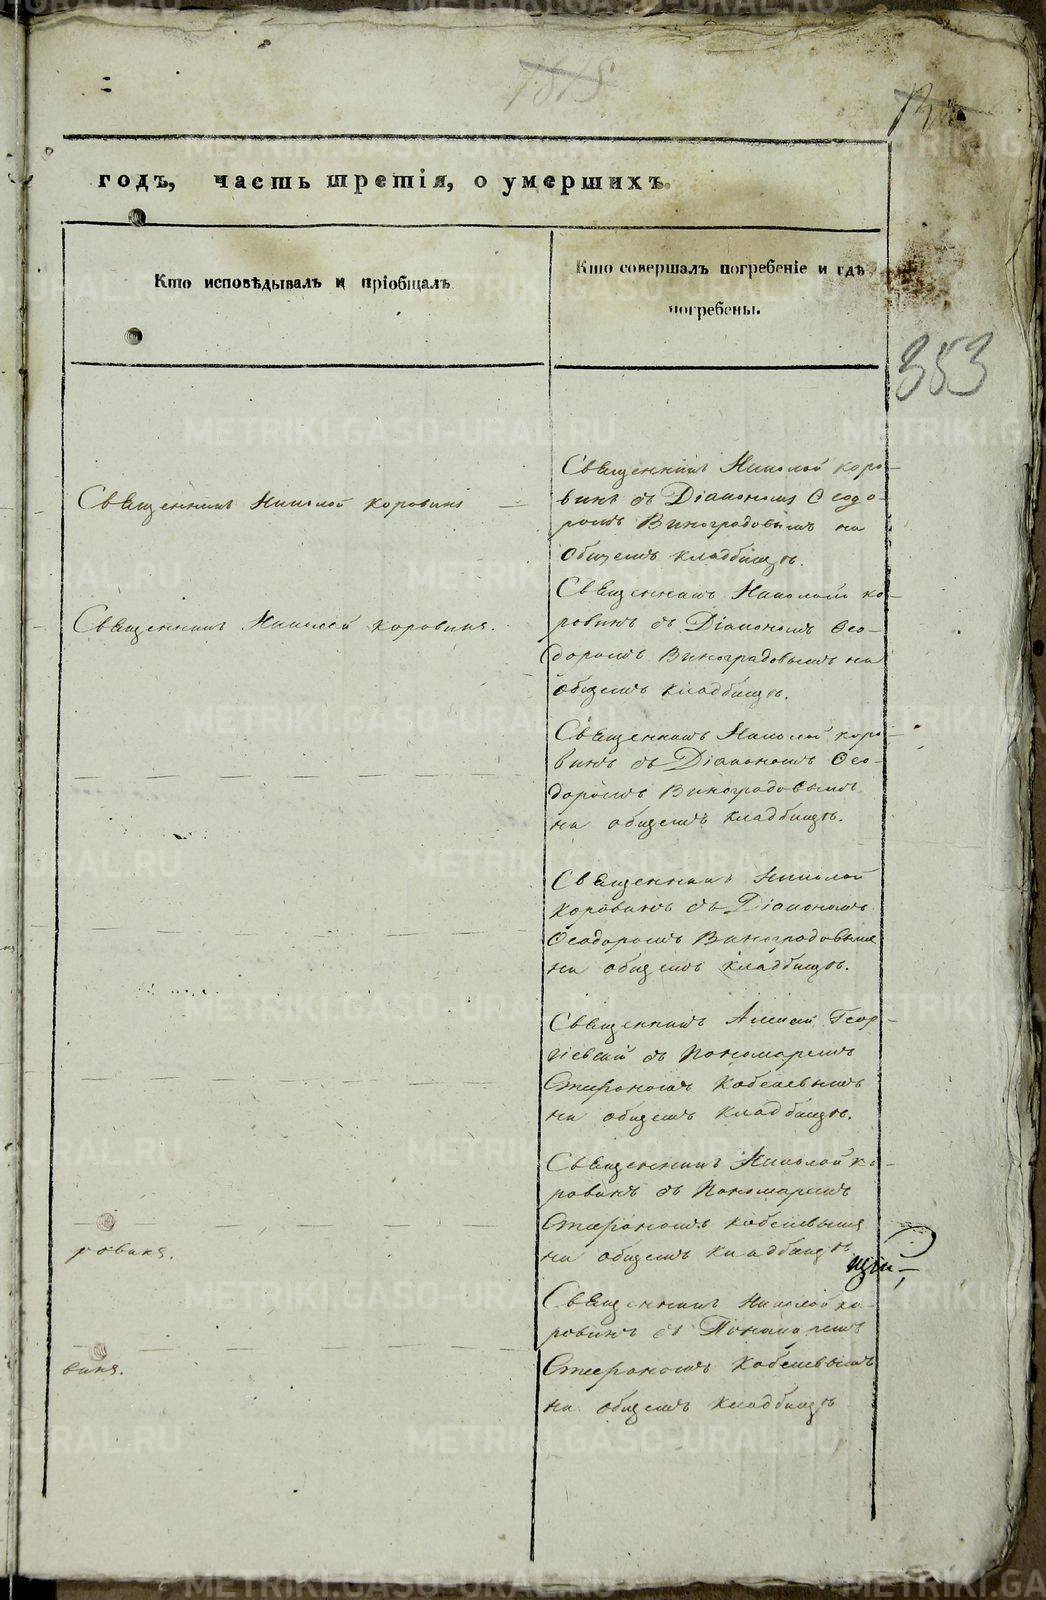 годъ, часть третія, о умершихъ.
Кто исповѣдывалъ и пріобщалъ
Кто совершалъ погребеніе и гдѣ
погребены.
353
Священникъ Николай Коровинъ
Священникъ Николай Коро-
винъ съ Діакономъ Ѳеодо-
ромъ Виноградовымъ на
общемъ кладбищѣ.
Священникъ Николай Коровинъ.
Священникъ Николай Ко-
ровинъ съ Діакономъ Ѳео-
доромъ Виноградовымъ на
общемъ кладбищѣ.
Священникъ Николай Коро-
винъ съ Діакономъ Ѳео-
доромъ Виноградовымъ
на общемъ кладбищѣ.
Священникъ Николай
Коровинъ съ Діакономъ
Ѳеодоромъ Виноградовымъ
на общемъ кладбищѣ.
Священникъ Алексей Геор-
гіевскій съ Пономаремъ
на общемъ кладбищѣ.
Священникъ Николай Ко-
ровинъ съ Пономаремъ
ровинъ.
на общемъ кладбищѣ
Священникъ Николай Ко-
ровинъ съ Пономаремъ
винъ.
на общемъ кладбищѣ
METRIKI.GASO-URAL.RU